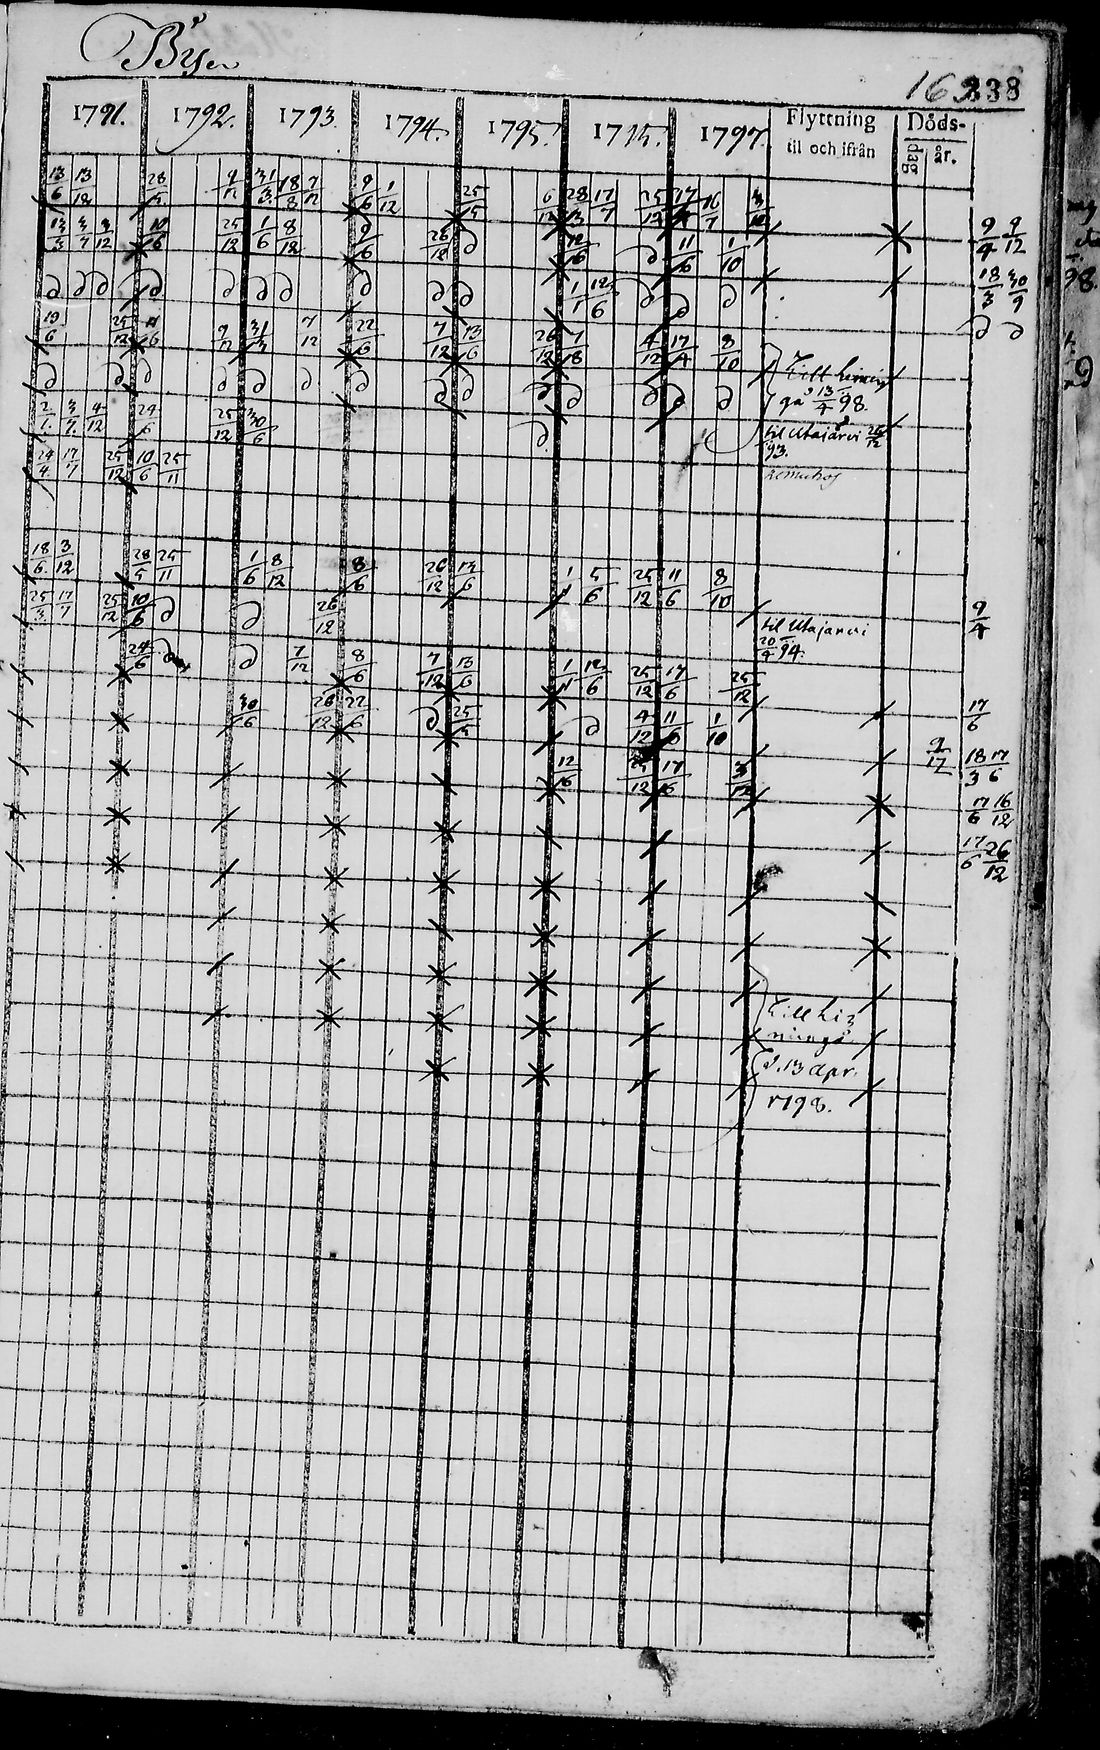 Byn
16 338
1791. 1792. 1793. 1794. 1795. 1715. 1797. Flyttning Döds-
til och ifrån dag år.
13/6 13/12 28/5 4/12 31/3 18/8 7/12 9/6 1/12 25/5 6/12 28/13 17/7 25/12 17/4 16/7 3/10
13/3 3/7 4/12 10/6 25/12 1/6 8/12 9/6 26/12 d 12/6 d 11/6 1/10 9/4 9/12
d d d d d d d d d d 1/1 12/6 d d d 18/3 30/9
19/6 25/12 11/6 9/12 31/3 7/12 22/6 7/12 13/6 26/12 7/18 4/12 17/4 8/10 d d
d d d d d d d d d d d d d d Till Limin
gå 13/4 98.
2/1 3/7 4/12 24/6 25/12 30/6 d til Utajärvi 26/12
93.
24/4 17/7 25/12 10/6 25/11
18/6 3/12 28/5 25/11 1/6 8/12 8/6 26/12 13/6 1/1 5/6 25/12 11/6 8/10
25/3 17/7 25/12 10/6 d d 26/12 til Utajärvi 9/4
20/4 94.
24/6 d 7/12 8/6 7/12 13/6 1/1 12/6 25/12 17/6 25/12
30/6 26/12 22/6 d 25/5 d 4/12 11/6 1/10 17/6
12/6 25/12 17/6 3/12 18/3 17/6
17/6 16/12
17/6 26/12
Till Li
minga
d. 13 Apr.
1798.